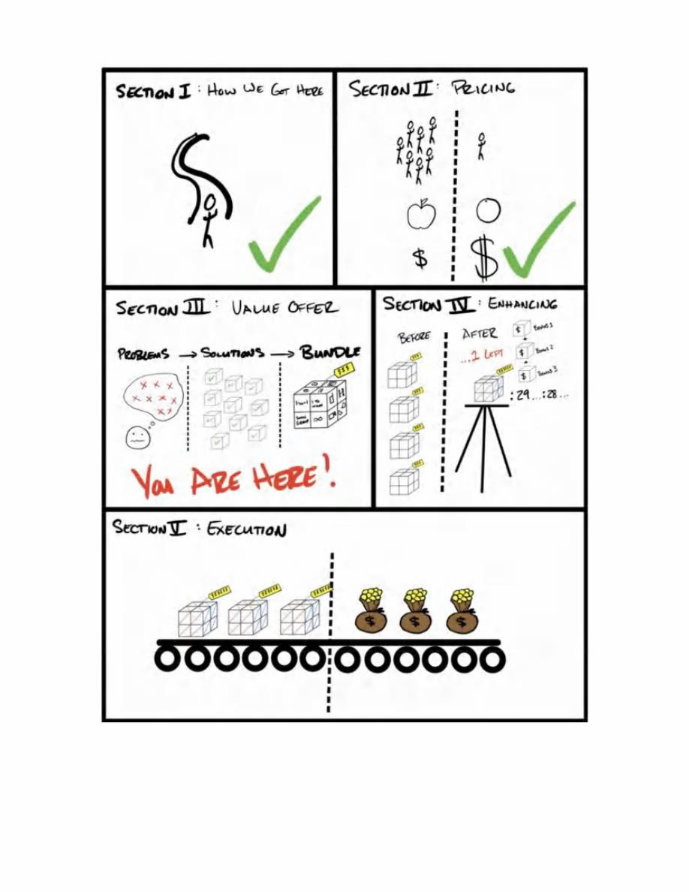 SECTION I : HOW WE GOT HERE
SECTION II : PRICING
$ $
SECTION III : VALUE OFFER
PROBLEMS → SOLUTIONS → BUNDLE
$$$
YOU ARE HERE!
SECTION IV : ENHANCING
BEFORE AFTER
...1 LEFT
$ Bonus 1
$ Bonus 2
$ Bonus 3
:29...:28...
SECTION V : EXECUTION
$ $ $